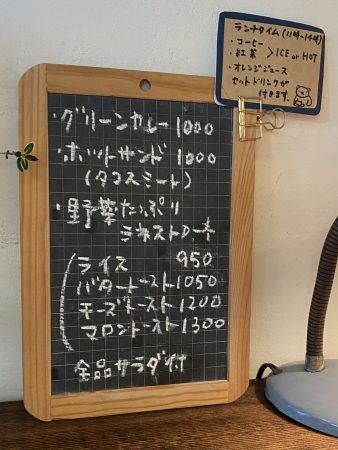 ランチタイム(11時~14時)
・コーヒー
・紅茶 > ICE or HOT
・オレンジジュース
セットドリンクが
付きます。
・グリーンカレー 1000
・ホットサンド 1000
(タコスミート)
・野菜たっぷり
ミネストローネ
ライス 950
バタートースト 1050
チーズトースト 1200
マロントースト 1300
全品サラダ付